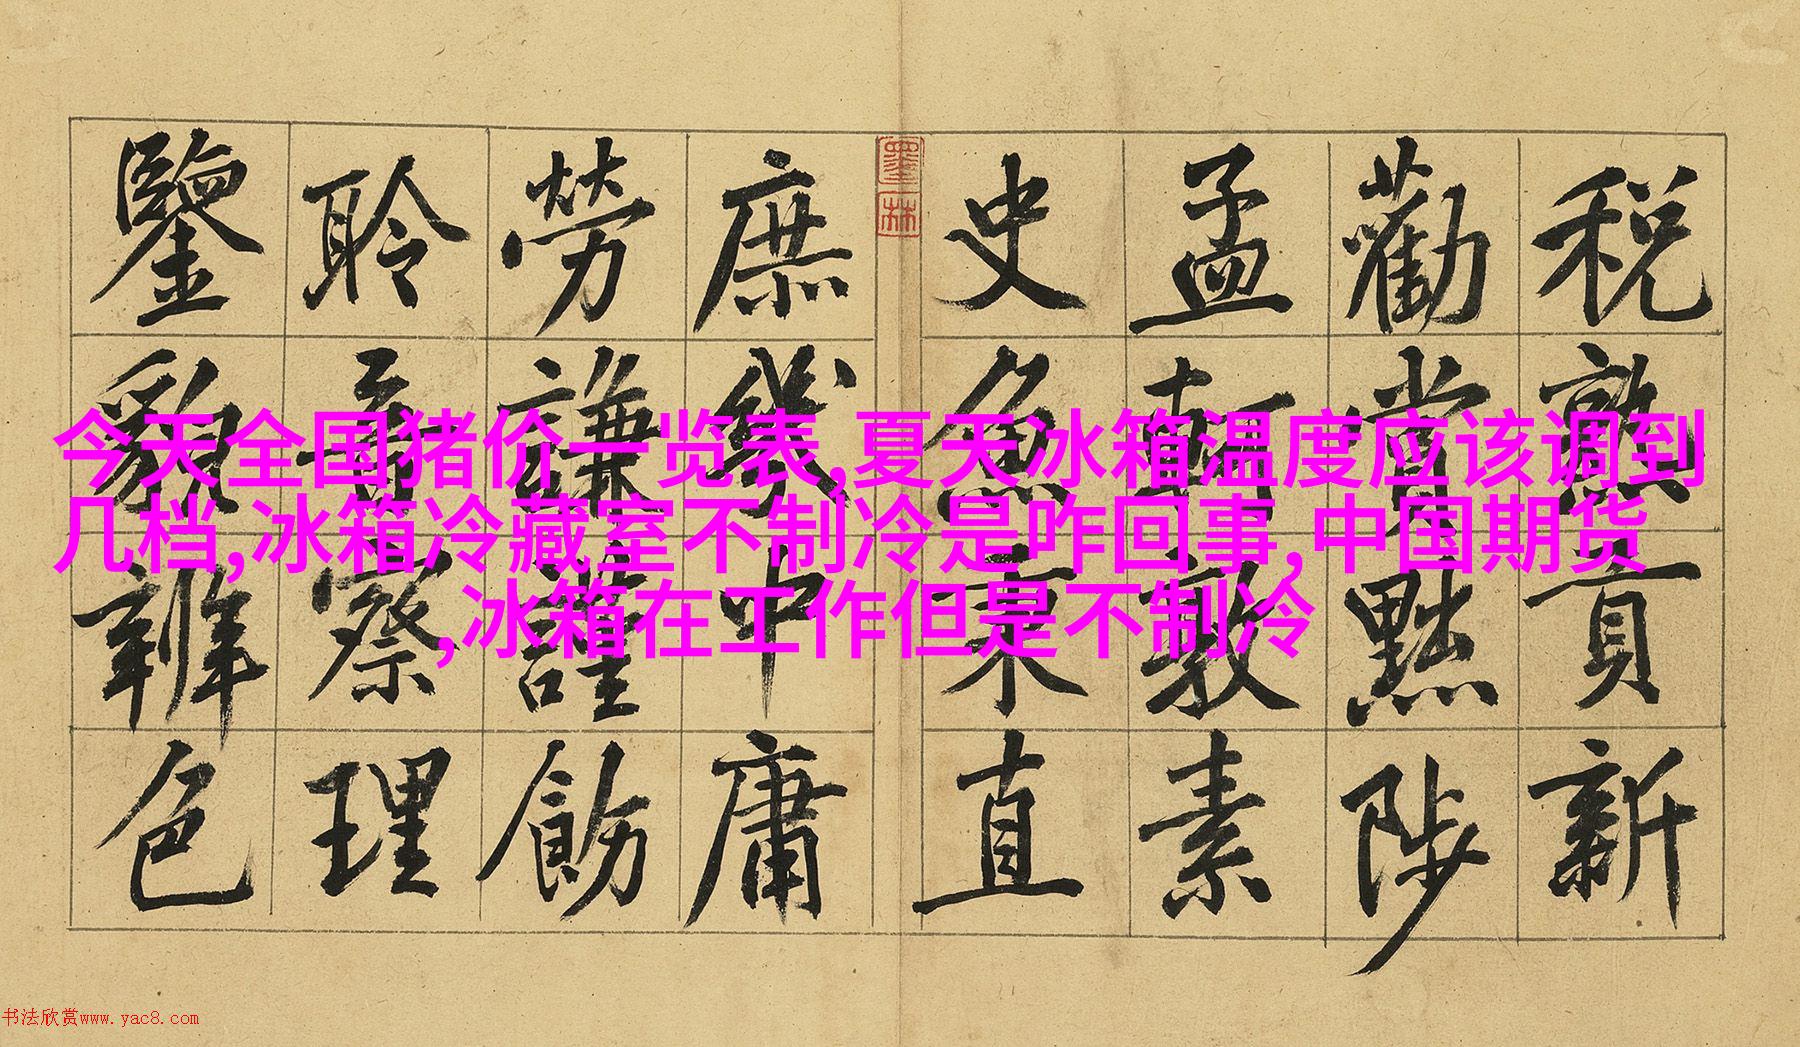 税熟貢新
勸賞黜陟
孟軻敦素
史魚秉直
庶幾中庸
勞謙謹飭
聆音察理
鑒貌辨色
墨林
今天全国猪价一览表,夏天冰箱温度应该调到
几档,冰箱冷藏室不制冷是咋回事,中国期货
,冰箱在工作但是不制冷
书法欣赏www.yac8.com